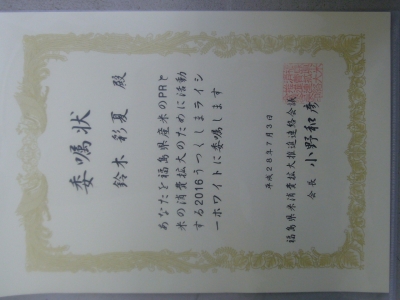 委嘱状
鈴木 彩夏 殿
あなたを福島県産米のPRと
米の消費拡大のために活動
する2016うつくしまライシ
ーホワイトに委嘱します
平成28年7月3日
福島県米消費拡大推進連絡会議
会長 小野和彦